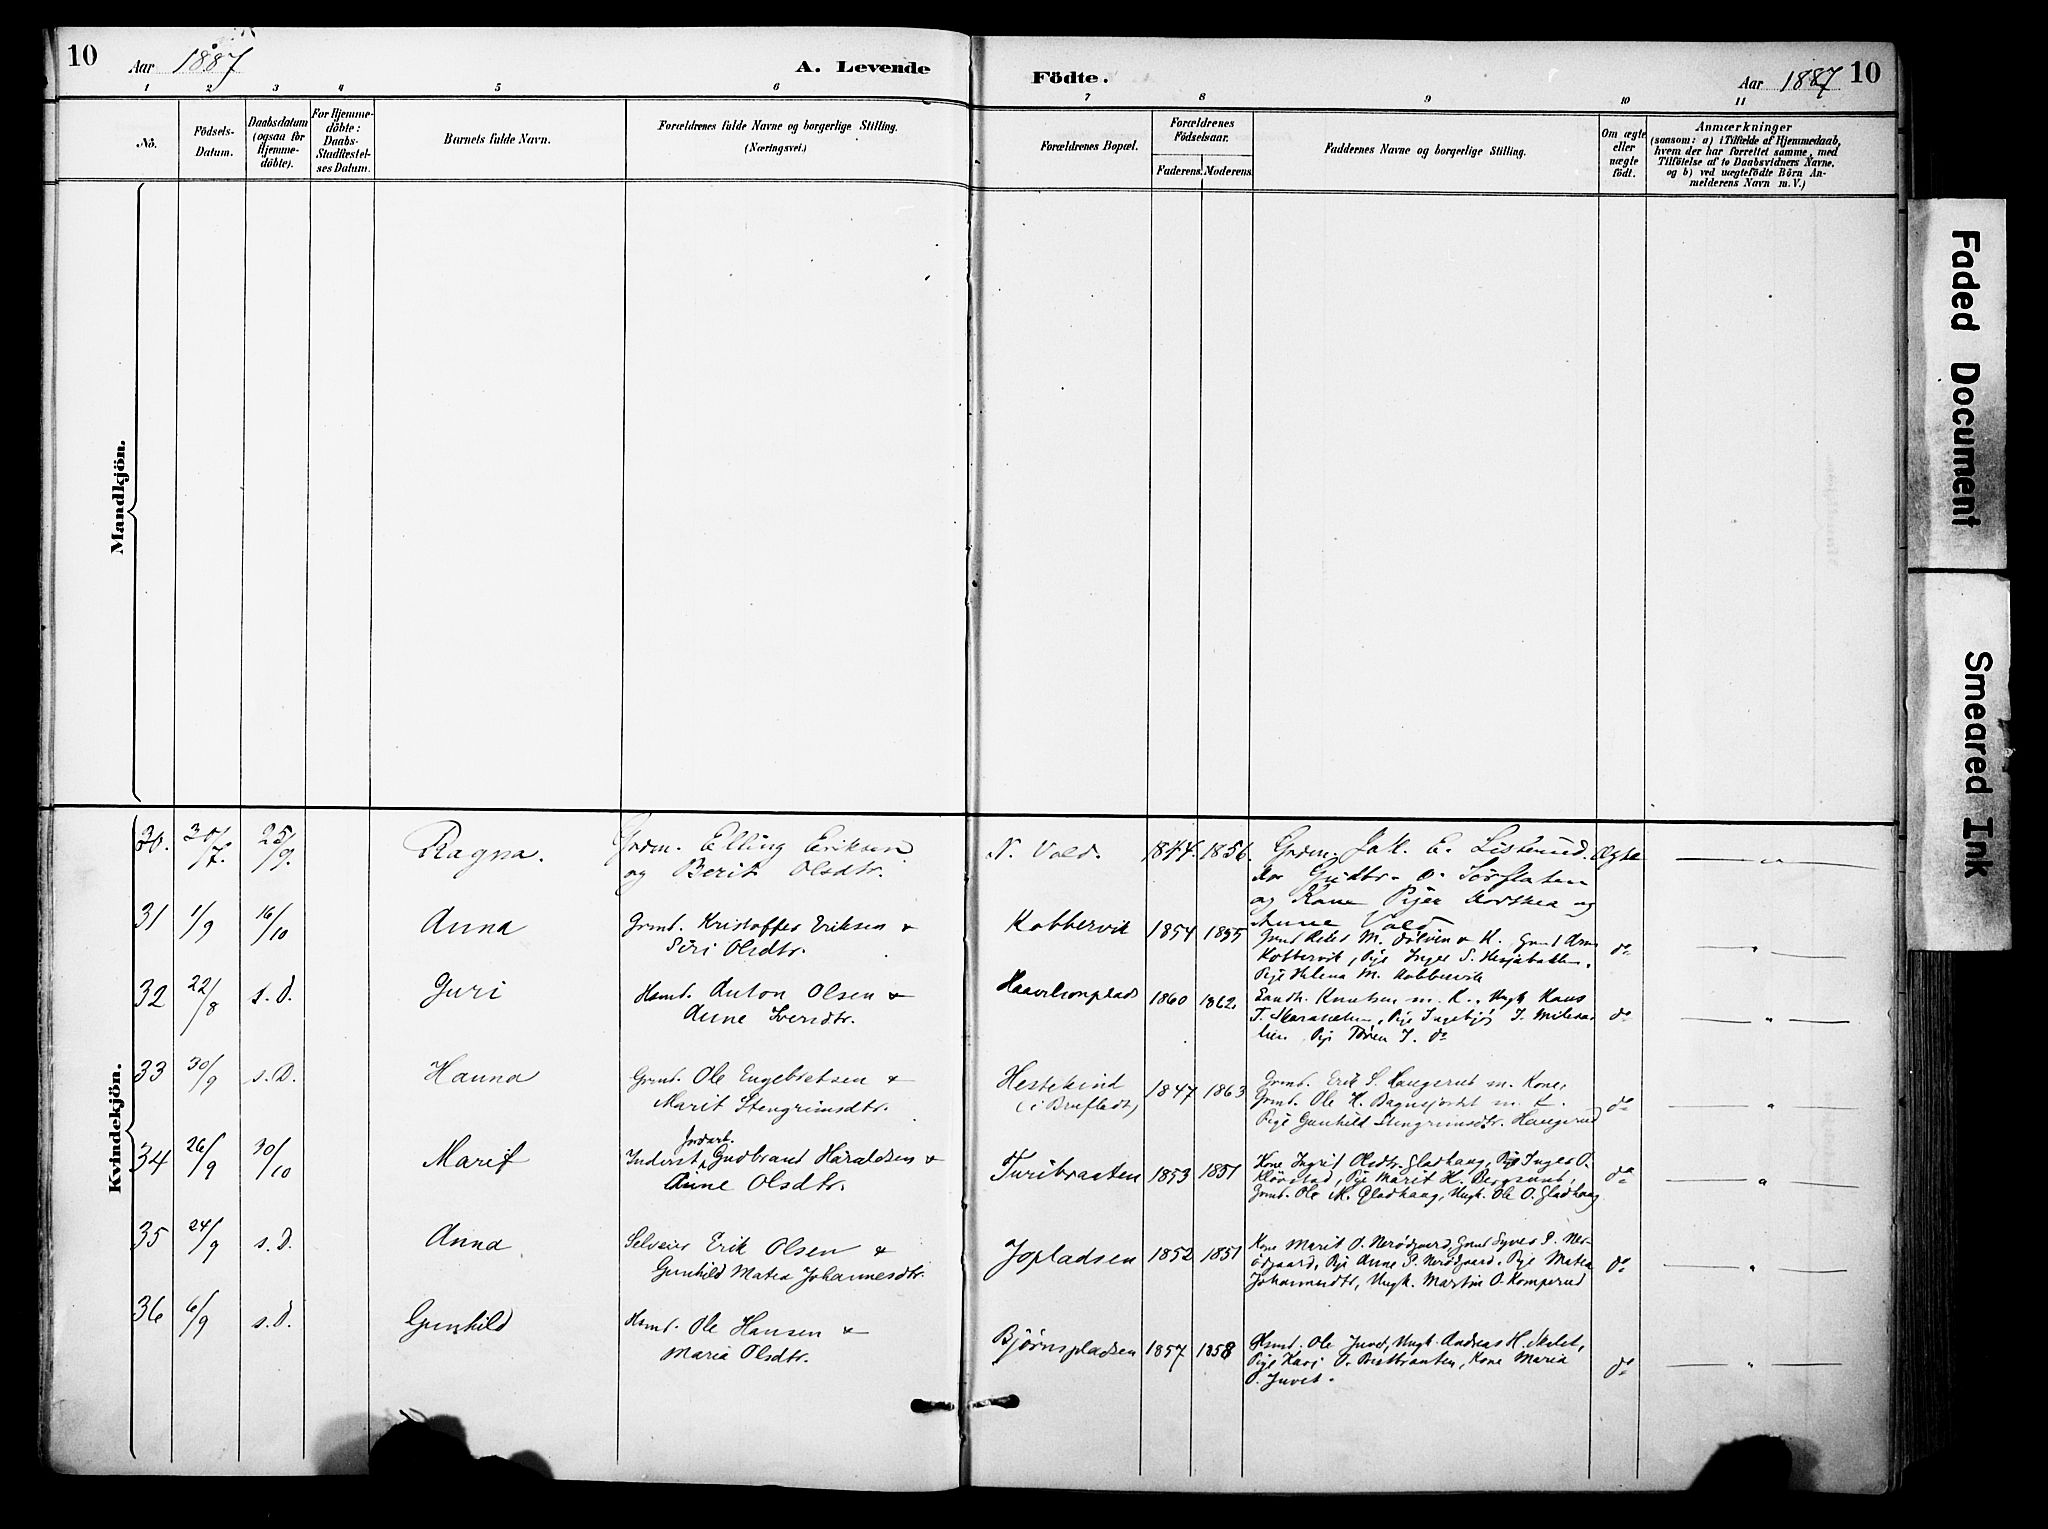 10
Aar 1887
A. Levende
Födte.
Aar 1887
10
1 2 3 4 5 6 7 8 9 10 11
No.
Födsels-
Datum.
Daabsdatum
(ogsaa for
Hjemme-
döbte).
For Hjemme-
döbte:
Daabs-
Stadfæstel-
ses Datum.
Barnets fulde Navn.
Forældrenes fulde Navne og borgerlige Stilling.
(Næringsvei.)
Forældrenes Bopæl.
Forældrenes
Födselsaar.
Faderens. Moderens.
Faddernes Navne og borgerlige Stilling.
Om ægte
eller
uægte
födt.
Anmærkninger
(saasom: a) i Tilfælde af Hjemmedaab,
hvem der har forrettet samme, med
Tilföielse af to Daabsvidners Navne,
og b) ved uægtefödte Börn An-
melderens Navn m. V.)
Mandkjön.
Kvindekjön.
30. 30/7. 25/9. Ragna. Grdm. Elling Eriksen
og Berit Olsdtr.
N. Vold. 1844. 1856. Grdm. E.
og Kone Pige og
Anne Vold
Ægte
31 1/9 16/10 Anna Grmd. Kristoffer Eriksen &
Siri Olsdtr.
Kobbervik 1854 1855
Kobbervik, Pige Inger S.
Pige Helena M. Kobbervik
do
32 22/8 s. D. Guri Hsmd. Anton Olsen &
Anne Iversdtr.
1860 1862. Knutsen m. K., Ungk. Hans
T. Pige Ingebjør I.
lien Pige I. do
do
33 30/9 s. D. Hanna Grmd. Ole Engebretsen &
Marit Stengrimsdtr.
Hestekind
(i Brufladt)
1847 1863 Grmd. Erik S. Haugerud m. Kone,
Grmd. Ole H. Bagnsjordet m. K.
Pige Gunhild Stengrimsdtr. Haugerud
do
34 26/9 30/10 Marit Jordarb.
Inderst Gudbrand Haraldsen &
Anne Olsdtr.
Turibraaten 1853 1851 Kone Ingrid Olsdtr. Gladhaug, Pige Inger O.
Pige Marit H.
Grmd. Ole M. Gladhaug, Ungk. Ole O. Gladhaug
do
35 24/9 s. D. Anna Selveier Erik Olsen &
Gunhild Matea Johannesdtr.
Jopladsen 1852 1851 Kone Marit O. Nerødgaard, Grmd Syver P. Ner-
ødgaard, Pige Anne P. Nerødgaard, Pige Matea
Johannesdtr, Ungk. Martin O. Komperud
do
36 6/9 s. D. Gunhild Hsmd. Ole Hansen &
Maria Olsdtr.
Bjørnspladsen 1857 1858 Hsmd. Ole Juvet, Ungk. Andreas H.
Pige Kari O. Kone Maria
O. Juvet.
do
Faded Document
Smeared Ink